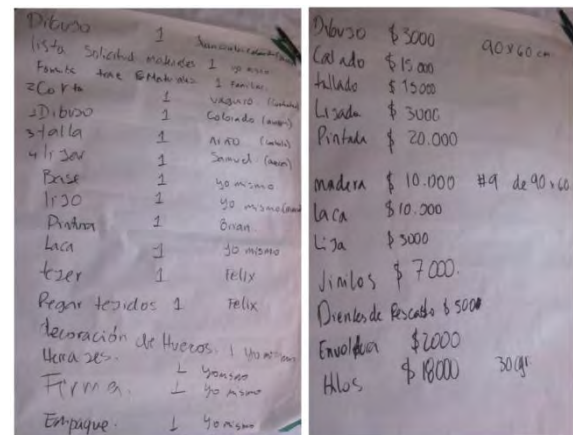 Dibujo 1
lista solicitud materiales 1 yo mismo
Fuente trae Materiales 1 Familiar
2 Corte 1
2 Dibujo 1 Colorado
3 talla 1
4 lijar 1 Samuel
Base 1 yo mismo
lijo 1 yo mismo
Pintura 1 Brian
Laca 1 yo mismo
tejer 1 Felix
Pegar tejidos 1 Felix
decoración de Huesos. 1 yo mismo
Herrajes. 1 yo mismo
Firma. 1 yo mismo
Empaque. 1 yo mismo
Dibujo $ 3000 90x60 cm
Calado $ 15.000
tallado $ 15000
Lijada $ 3000
Pintada $ 20.000
madera $ 10.000 #9 de 90x60
laca $ 10.000
Lija $ 3000
Vinilos $ 7000.
Dientes de Pescado $ 5000
$ 2000
Hilos $ 18000 30 gr.